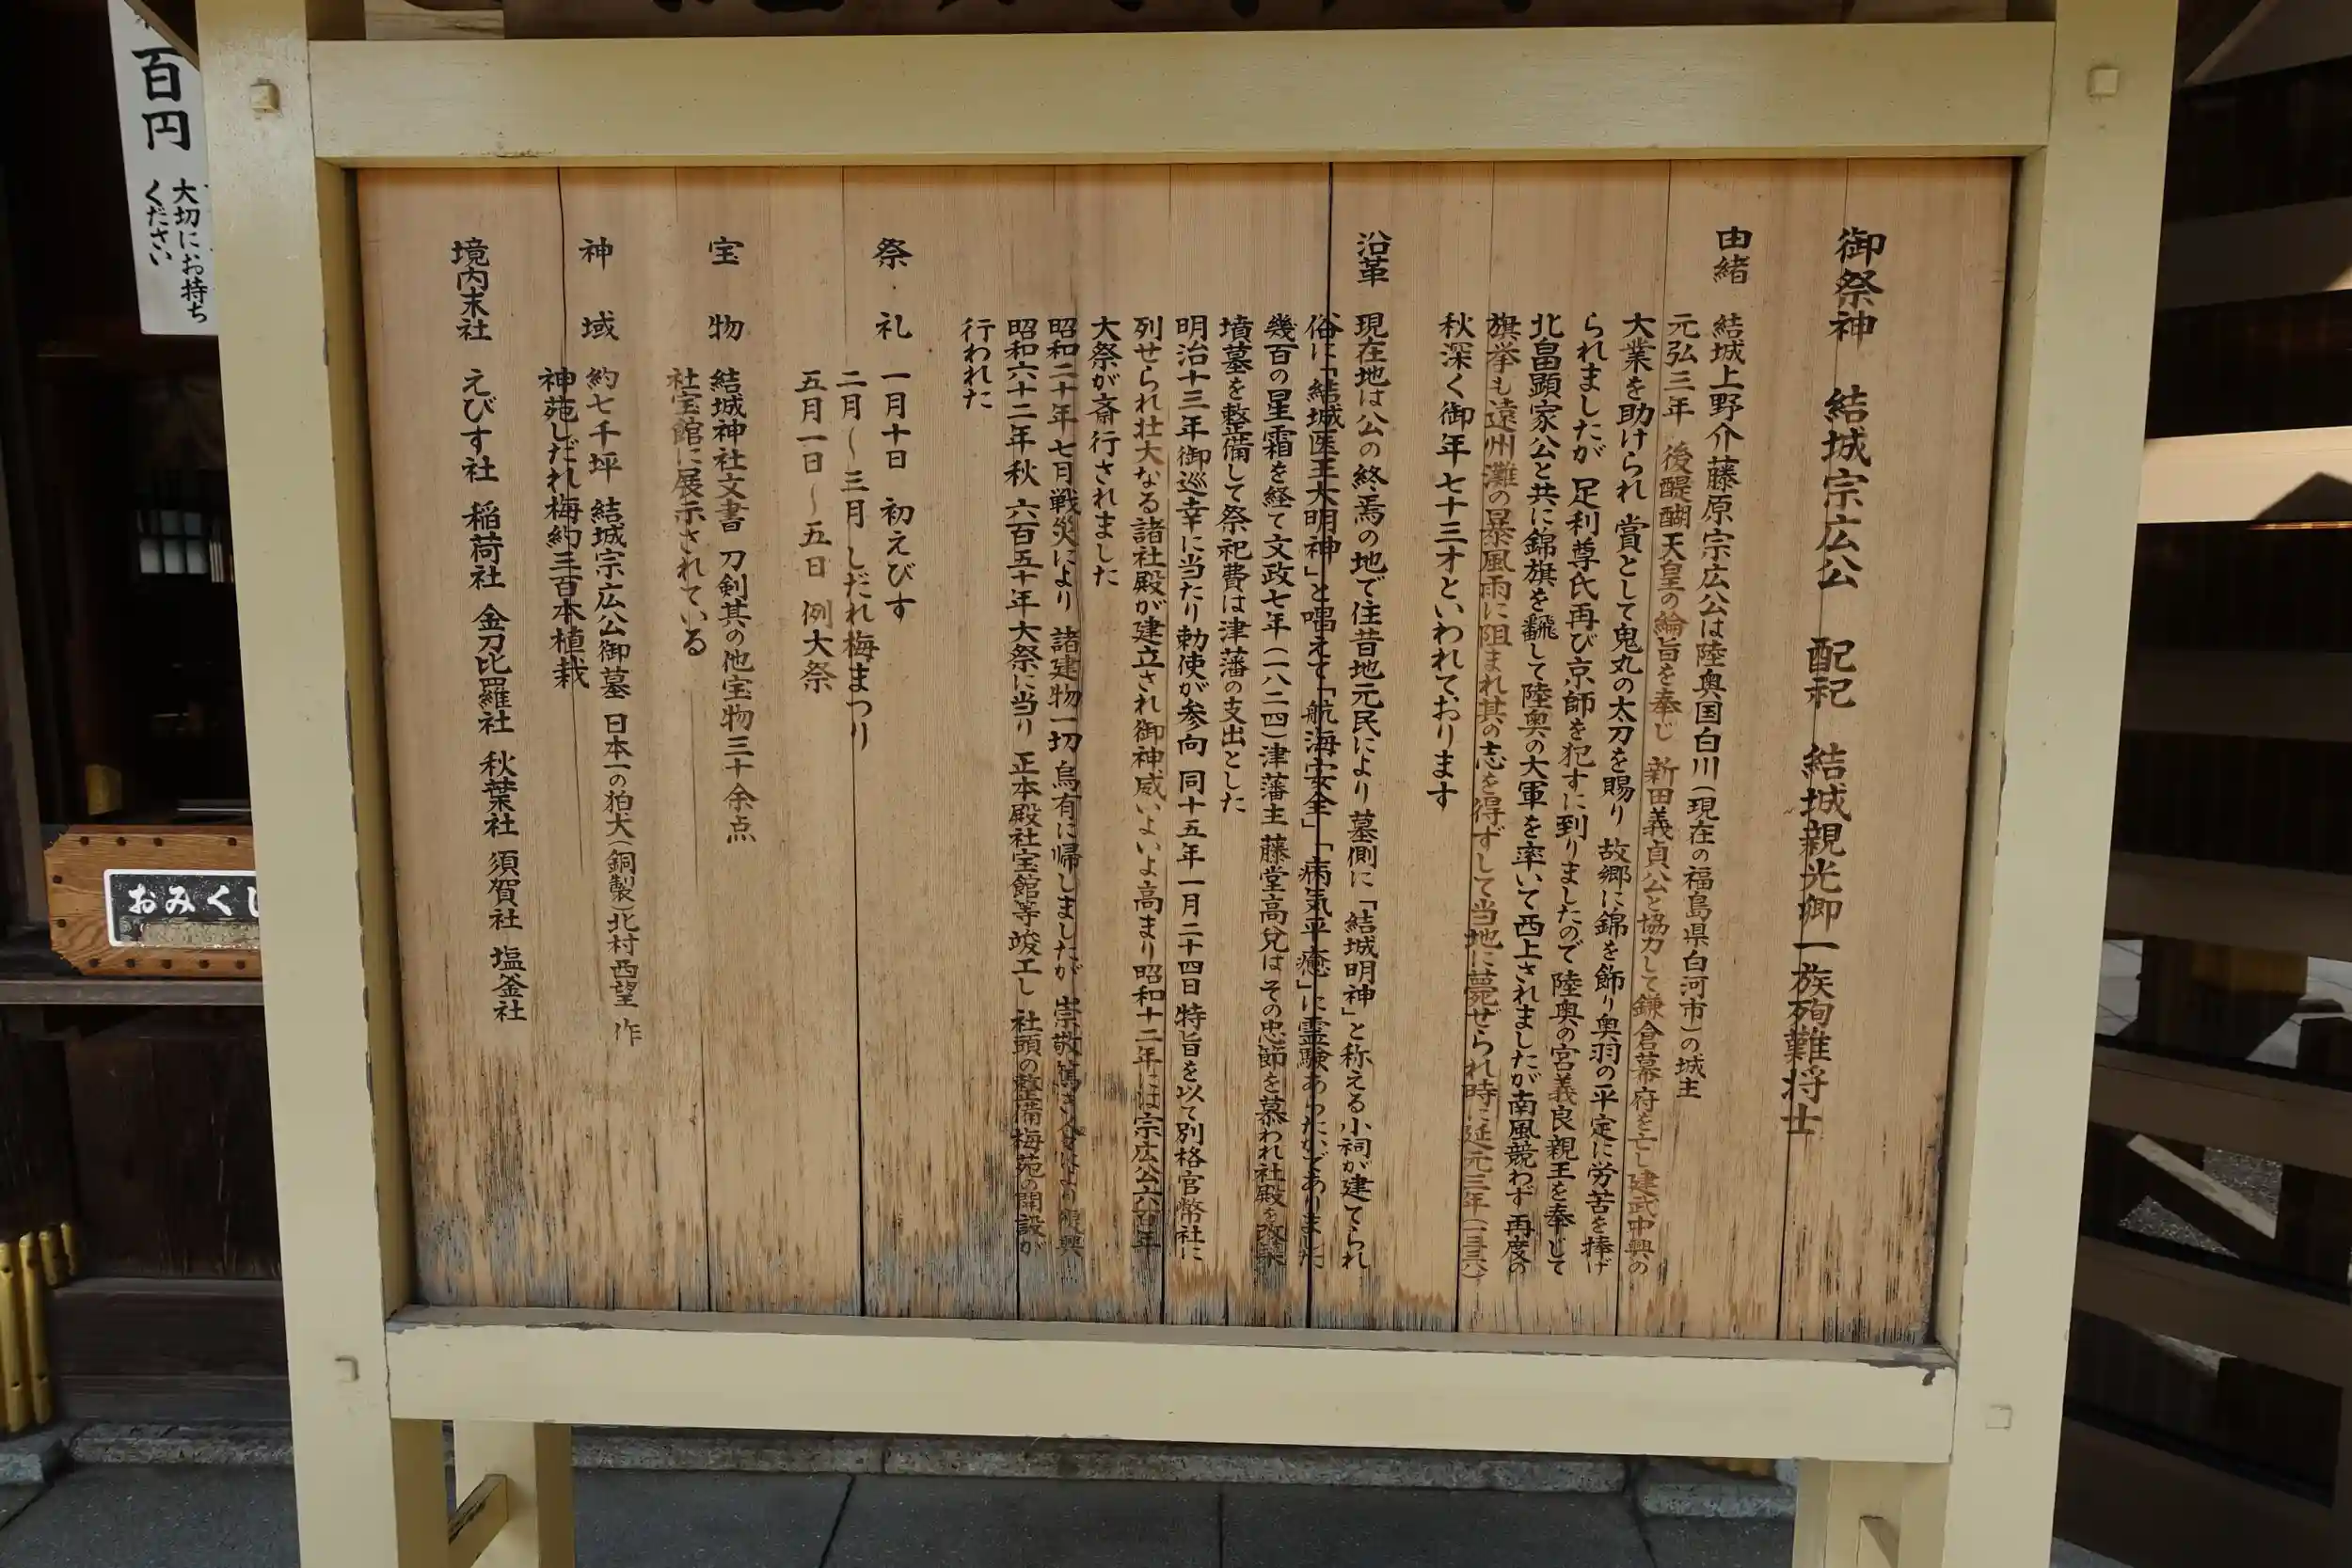 御祭神 結城宗広公 配祀 結城親光卿一族殉難将士
由緒
結城上野介藤原宗広公は陸奥国白川(現在の福島県白河市)の城主
元弘三年 後醍醐天皇の綸旨を奉じ 新田義貞公と協力して鎌倉幕府を亡し建武中興の
大業を助けられ 賞として鬼丸の太刀を賜り 故郷に錦を飾り奥羽の平定に労苦を捧げ
られましたが 足利尊氏再び京師を犯すに到りましたので 陸奥の宮義良親王を奉じて
北畠顕家公と共に錦旗を飜して陸奥の大軍を率いて西上されましたが南風競わず 再度の
旗挙も遠州灘の暴風雨に阻まれ其の志を得ずして当地に薨ぜられ時に延元三年(一三三八)
秋深く御年七十三才といわれております
沿革
現在地は公の終焉の地で往昔地元民により 墓側に「結城明神」と称える小祠が建てられ
俗に「結城医王大明神」と唱えて「航海安全」「病気平癒」に霊験あらたかでありました
幾百の星霜を経て文政七年(一八二四)津藩主 藤堂高兌はその忠節を慕われ社殿を改築
墳墓を整備して祭祀費は津藩の支出とした
明治十三年御巡幸に当たり勅使が参向 同十五年一月二十四日 特旨を以て別格官幣社に
列せられ壮大なる諸社殿が建立され御神威いよいよ高まり昭和十二年には宗広公六百年
大祭が斎行されました
昭和二十年七月戦災により 諸建物一切烏有に帰しましたが 崇敬篤き人々により復興
昭和六十二年秋 六百五十年大祭に当り 正本殿社宝館等竣工し 社頭の整備梅苑の開設が
行われた
祭礼
一月十日 初えびす
二月～三月 しだれ梅まつり
五月一日～五日 例大祭
宝物
結城神社文書 刀剣其の他宝物三十余点
社宝館に展示されている
神域
約七千坪 結城宗広公御墓 日本一の狛犬(銅製)北村西望 作
神苑しだれ梅約三百本植栽
境内末社 えびす社 稲荷社 金刀比羅社 秋葉社 須賀社 塩釜社
百円
大切にお持ち
ください
おみくじ